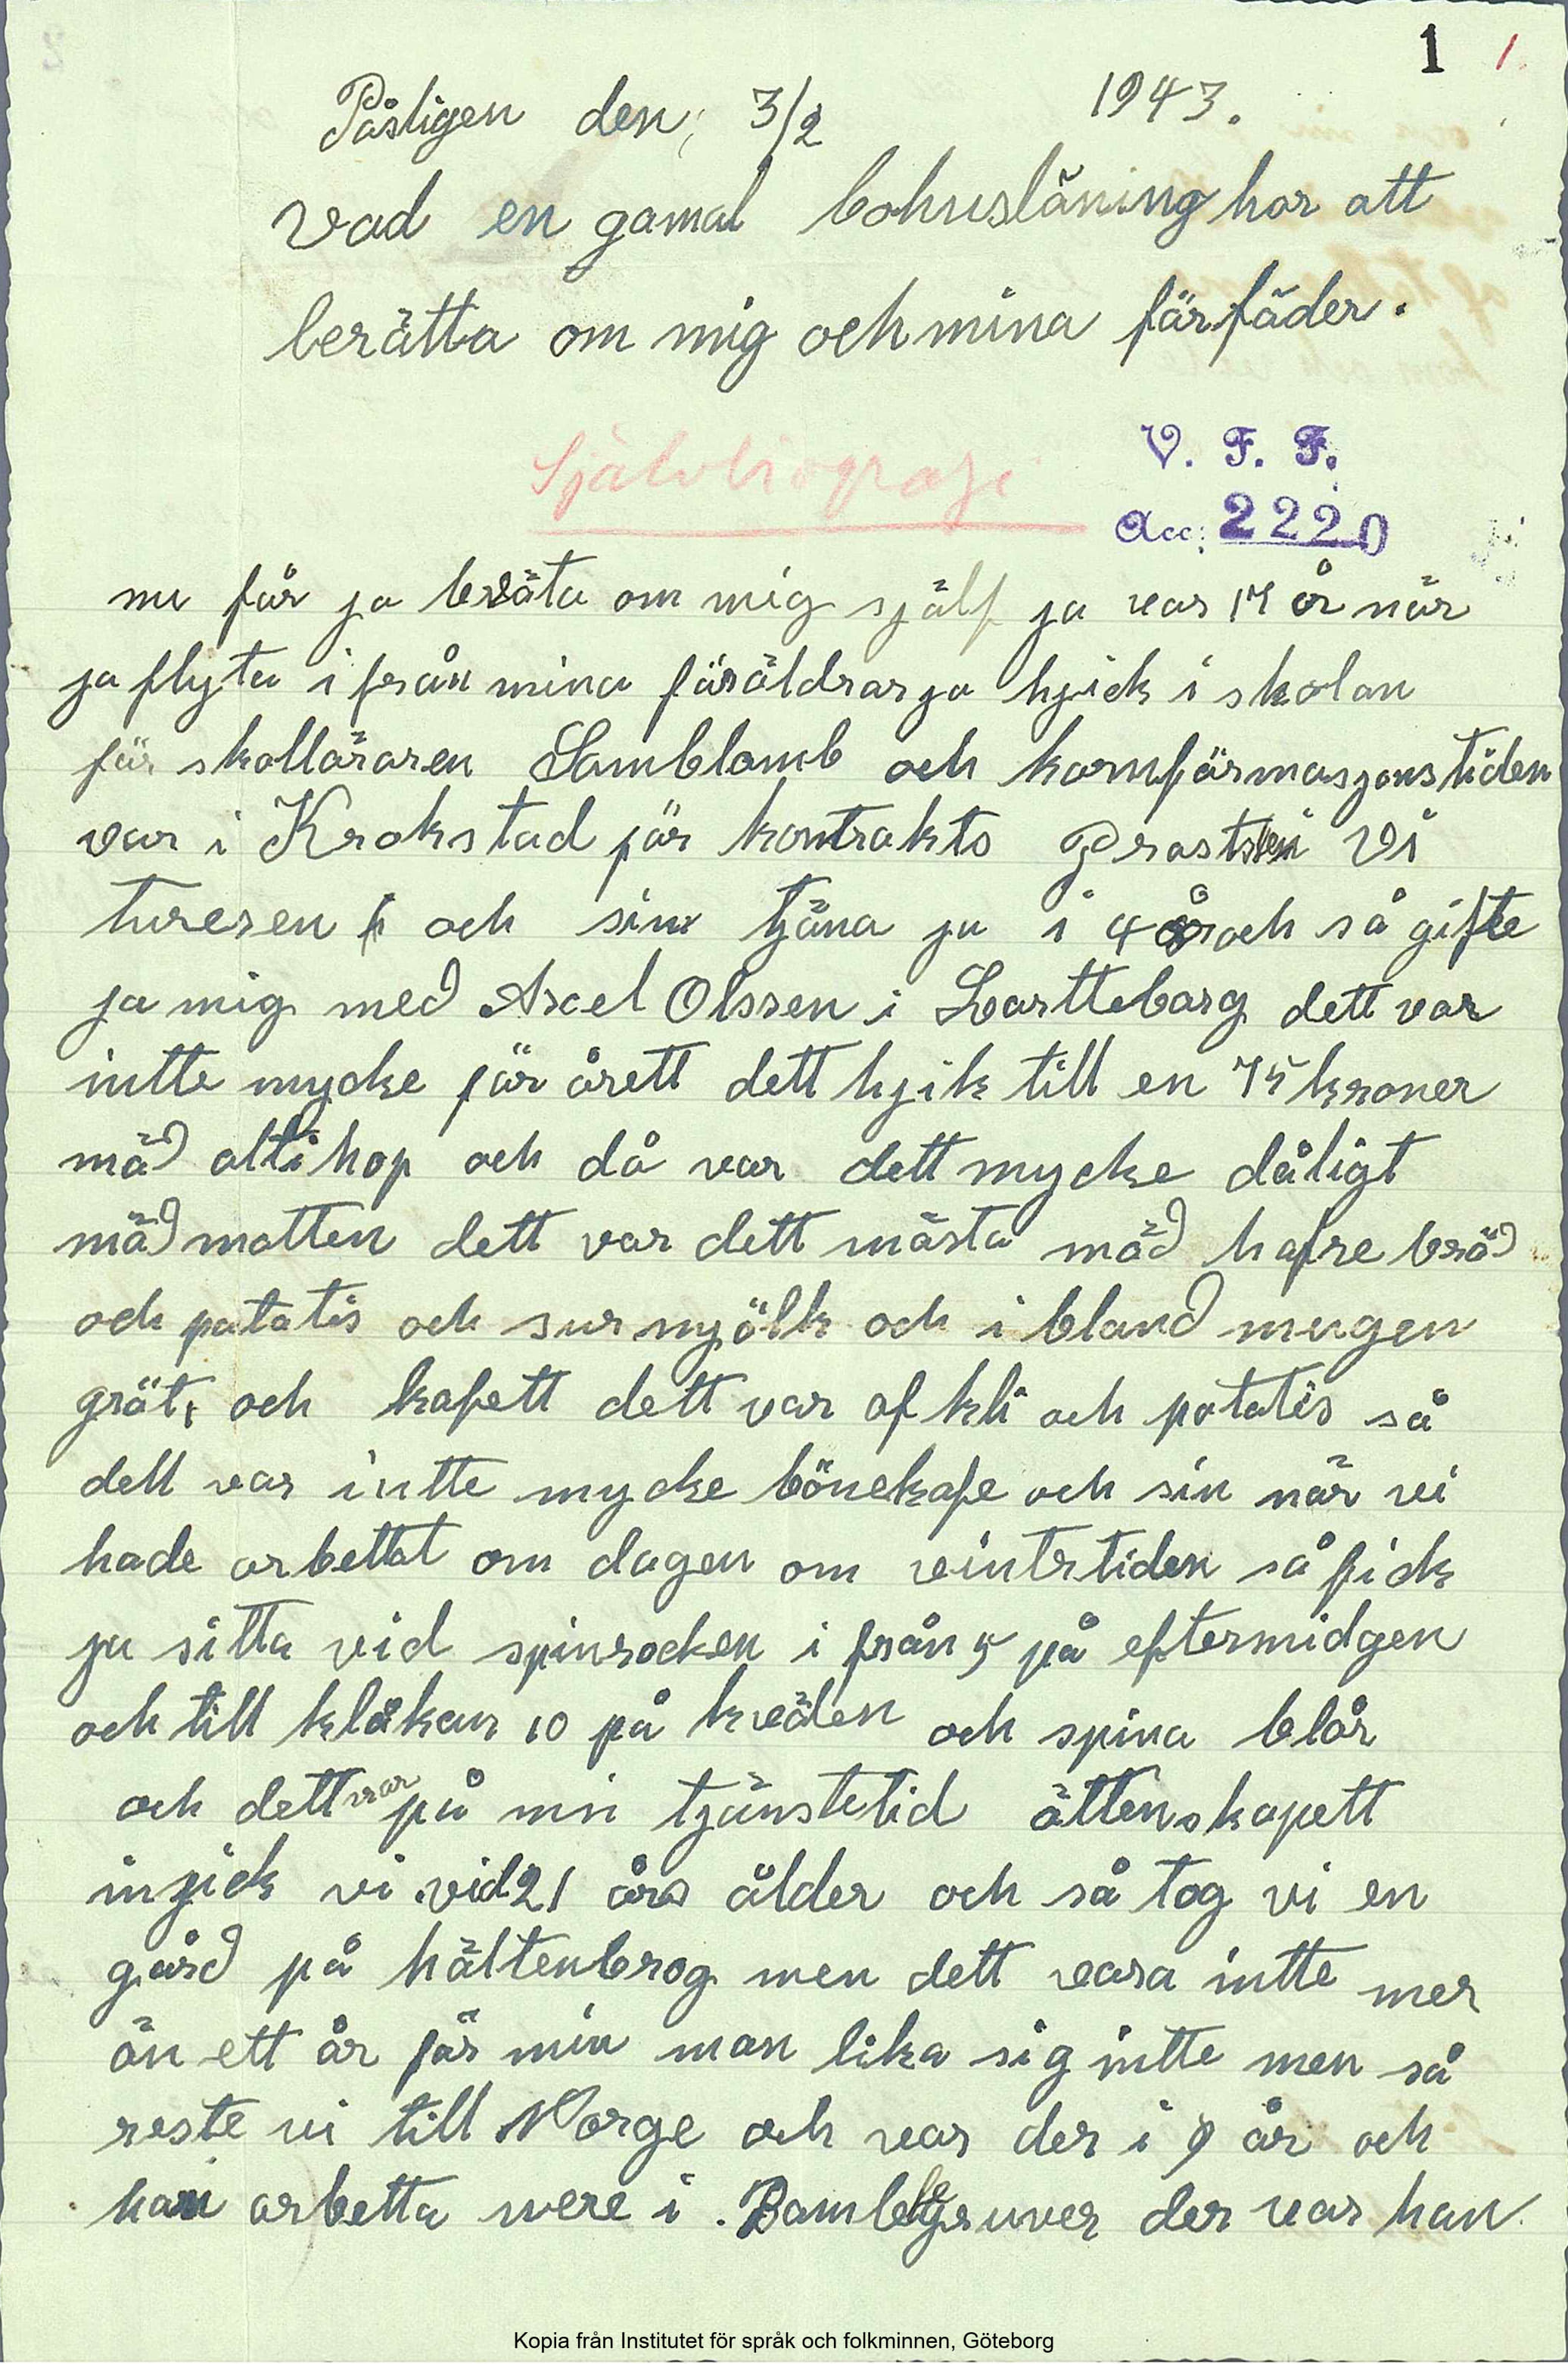 1 1.
Påstigen den, 3/2 1943.
Vad en gamal bohusläning har att
berätta om mig och mina färfäder.
Självbiografi
V. F. F.
Acc. 2220
nu får ja beräta om mig själf ja var 17 år när
ja flyta i från mina föräldrar ja hjick i skolan
för skolläraren Samblamb och kornförmasjonstiden
var i Krokstad för kontrakts Prosten Vi
tureren och sin tjäna ja i 4 år och så gifte
ja mig med Axel Olssen i Larttebarg dett var
intte mycke för årett dett hjik till en 75 kroner
mäd alltihop och då var dett mycke dåligt
mäd matten dett var dett mästa mäd hafre bröd
och patatis och surmjölk och i bland mugen
gröt, och kafett dett var af kli och potatis så
dett var intte mycke bönekafe och sin när vi
hade arbettat om dagen om vintrtiden så fick
ja sitta vid spinrocken i från 5 på eftermidgen
och till klåkan 10 på kvälen och spina blår
och dett var på min tjänstetid ättenskapett
injick vi vid 21 års ålder och så tog vi en
gård på hältenbrog men dett vara intte mer
än ett år för min man lika sig intte men så
reste vi till Norge och var der i 9 år och
han arbetta vere i . Bamblegruver der var han
Kopia från Institutet för språk och folkminnen, Göteborg